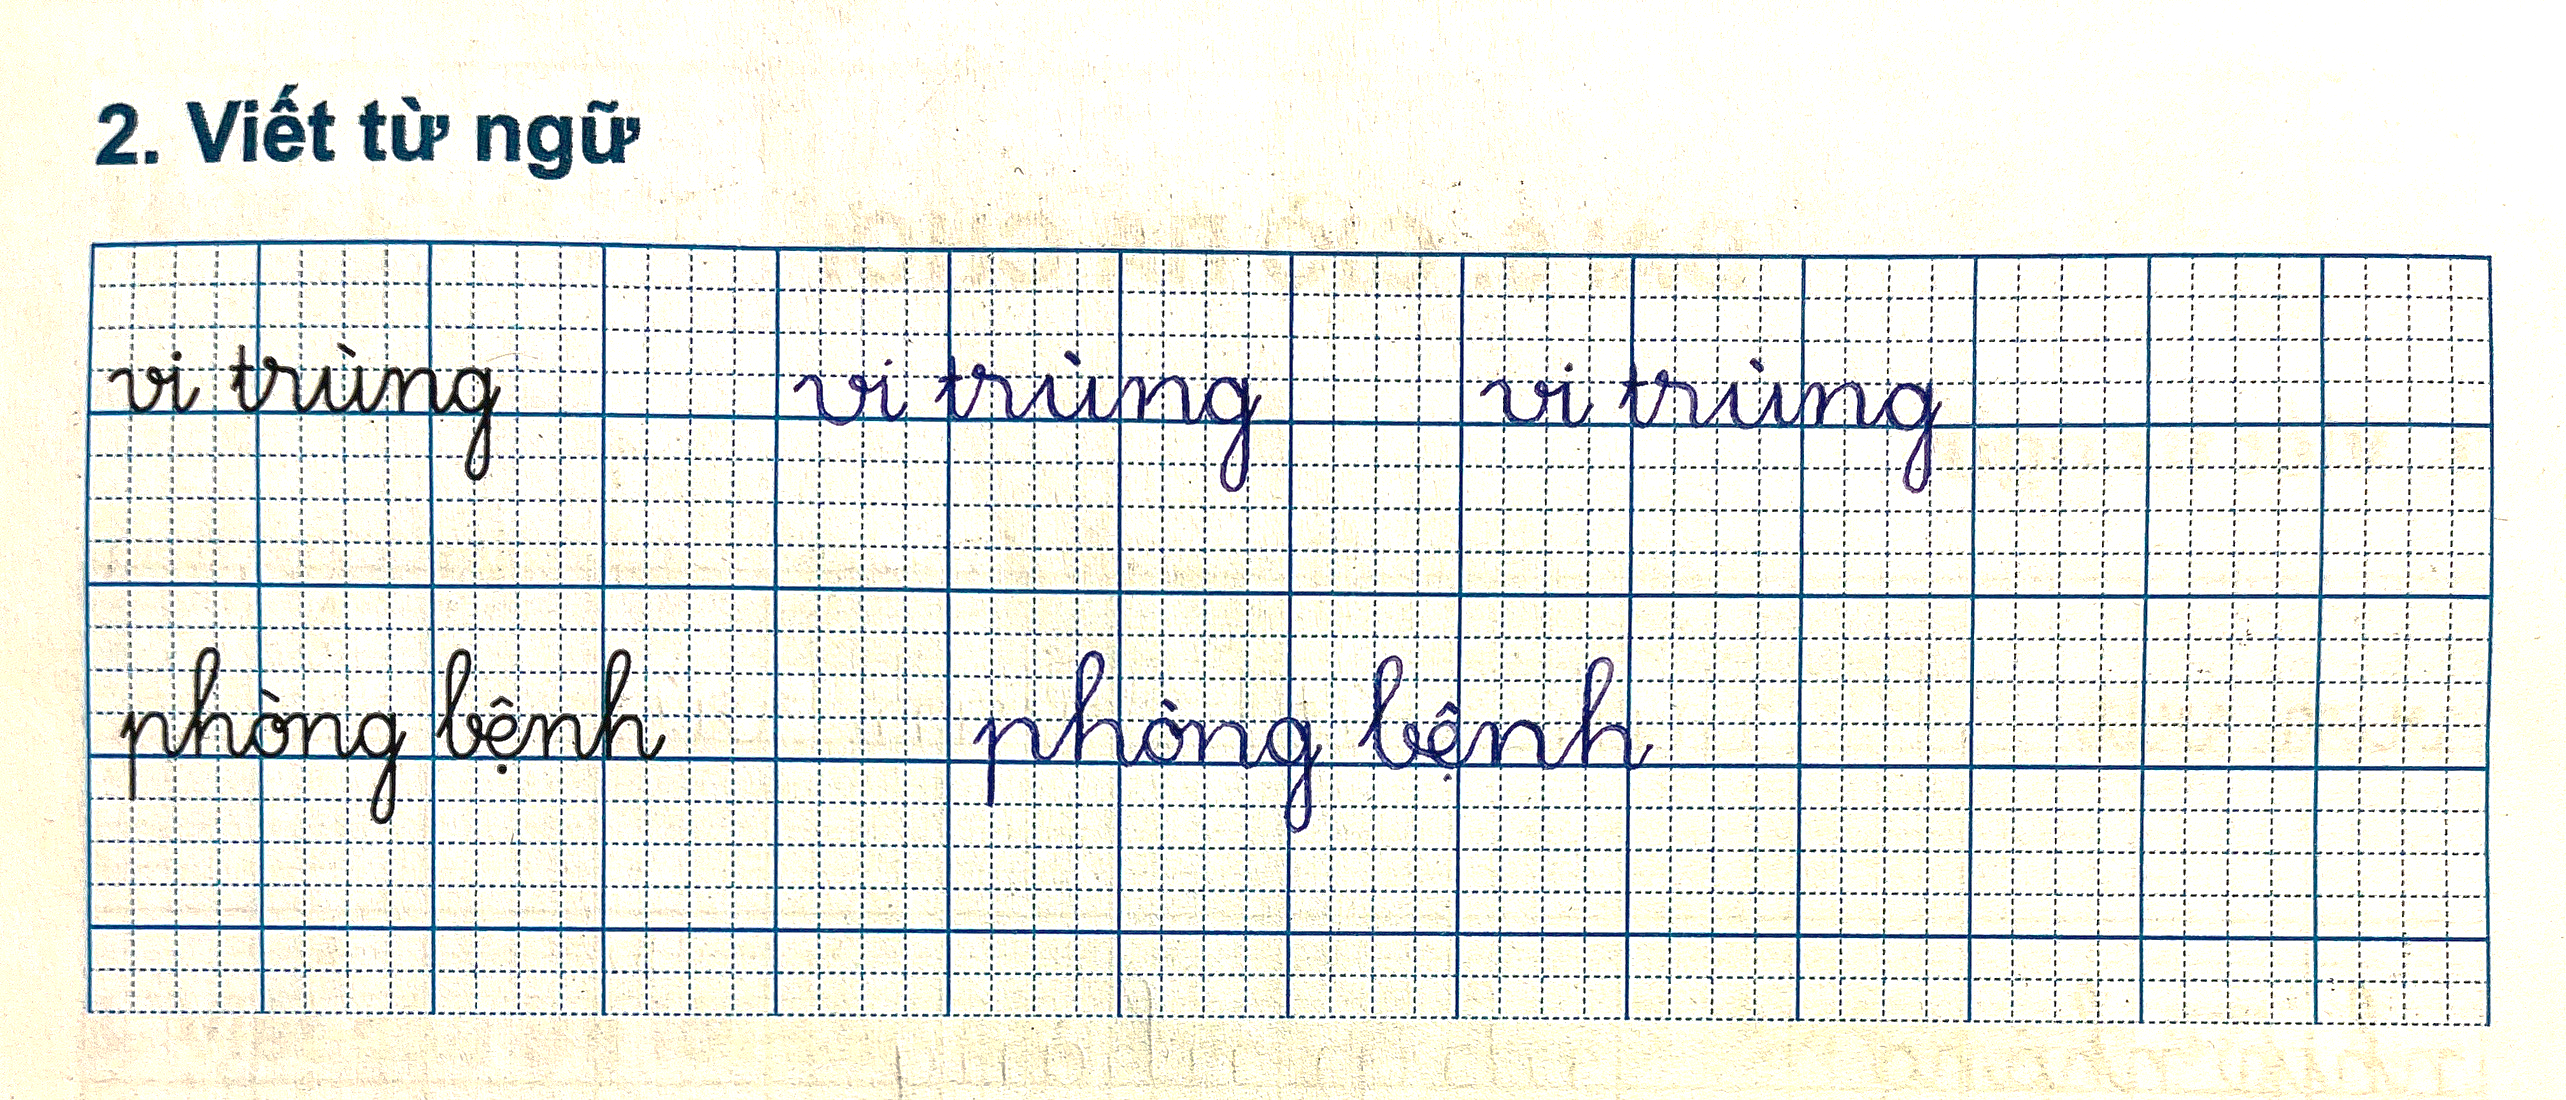 2. Viết từ ngữ
vi trùng vi trùng vi trùng
phòng bệnh phòng bệnh